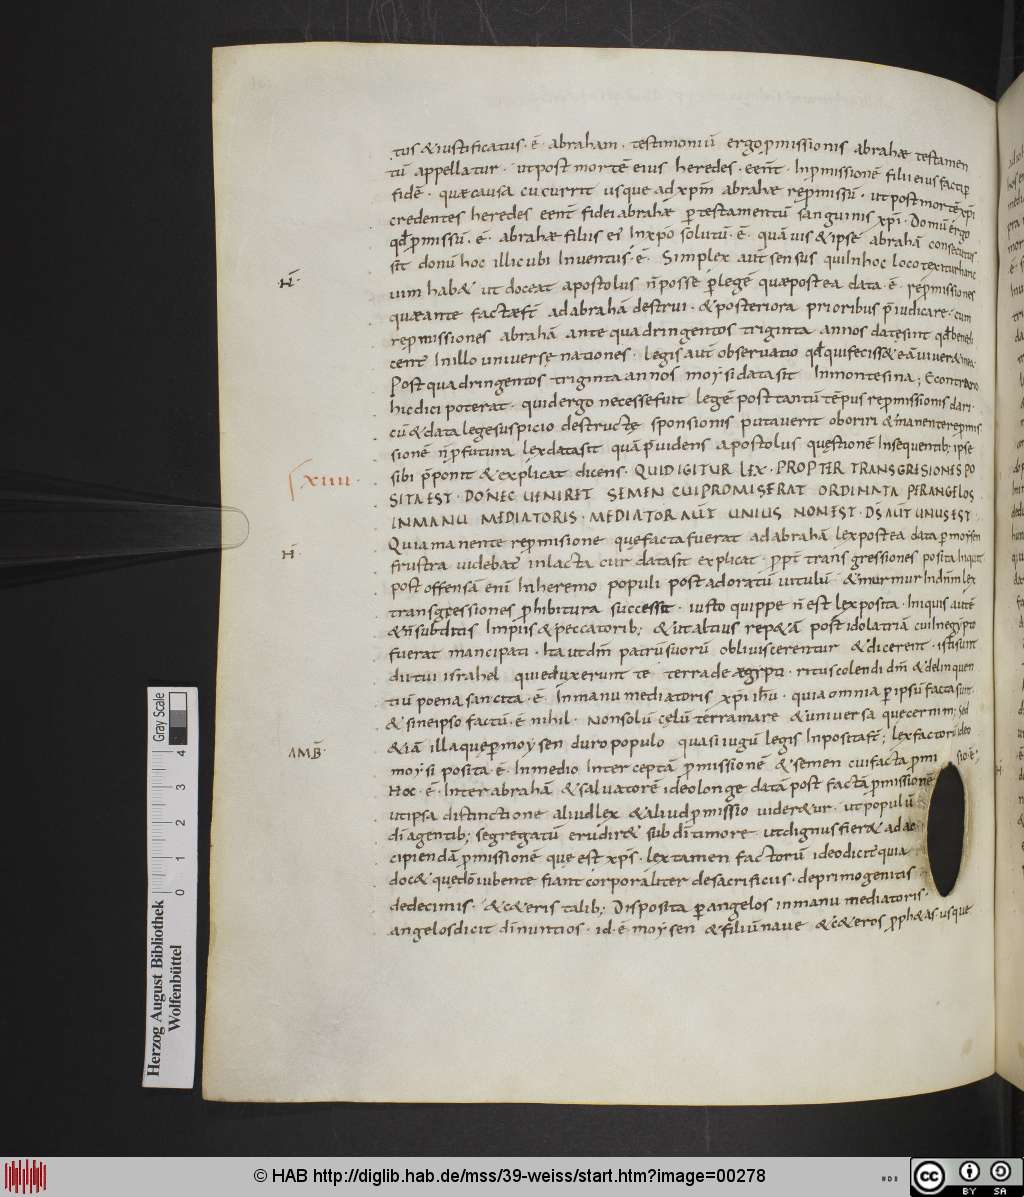 tus &iustificatus · ē · abraham · testimoniū ergo ꝑmissionis abrahæ testamen
tū appellatur · ut post mortē eius heredes · eēnt · In ꝑmissionē filii eius facti ꝑ
fidē · quæ causa cucurrit usque ad xpm̄ abrahæ reꝑmissū · ut post mortē xpi
credentes heredes eēnt fidei abrahæ ꝑ testamentū sanguinis xpi · Domū ergo
qđ ꝑmissū · ē · abrahæ filius ei in xpo solutū · ē · quāuis & ipse abrahā consecutus
sit donū hoc illic ubi inuentus · ē · Simplex aut̄ sensus qui in hoc loco texitur hanc
uim hab& ut doceat apostolus n̄ posse ꝑ legē quæ postea data · ē · reꝑmissiones
quæ ante factæ st̄ ad abrahā destrui · & posteriora prioribus p̄iudicare · cum
reꝑmissiones abrahā ante quadringentos triginta annos datę sint qđ bene
cent̄ In illo uniuersę nationes · legis aut̄ obseruatio qđ qui feciss& eā uiuer& in ea
Post quadringentos triginta annos moysi data sit In monte sina; E contrario
hic dici poterat · quid ergo necesse fuit legē post tantū tēpus reꝑmissionis dari ·
cū & data lege suspicio destructę sponsionis putauerit oboriri & manente reꝑmis
sione n̄ ꝓfutura lex data sit quā p̄uidens apostolus quęstionē Insequentib; ipse
sibi p̄ponit & explicat dicens · QUID IGITUR LEX · PROPTER TRANSGRESIONES PO
xiiii ·
SITA EST · DONEC UENIRET SEMEN CUI PROMISERAT ORDINATA PER ANGELOS
IN MANU MEDIATORIS · MEDIATOR AUT̄ UNIUS NON EST · DS̄ AUT̄ UNUS EST ·
H̄ ·
Quia manente reꝑmisione quę facta fuerat ad abrahā lex postea data ꝑ moysen
frustra uidebat̄ inlacta cur data sit explicat · ꝓpt̄ transgressiones posita Inquit
post offensā eni In heremo populi post adoratū uitulū · & murmur In dn̄m lex
transgressiones ꝓhibitura successit · iusto quippe n̄ est lex posita · Iniquis autē
& n̄ subditis Impiis & peccatorib; & ut altius rep&ā post idolatriā cui In egypto
fuerat mancipati · Ita ut dm̄ patrū suorū obliuiscerentur & dicerent · isti sunt
dii tui israhel qui eduxerunt te terra de ægypti · ritus colendi dm̄ & delinquen
tiū poena sancita · ē · In manu mediatoris xpi ihū · quia omnia ꝑ ipsū facta sunt ·
& sine ipso factū · ē nihil · Non solū cęlū terra mare & uniuersa que cernim; sed
AMB̄ ·
& iā illa que ꝑ moysen duro populo quasi iugū legis Inposita st̄; lex factorū ideo
moysi posita · ē · In medio Interceptā ꝑmissionē & semen cui facta ꝑmi sio · ē ·;
Hoc · ē · Inter abrahā & saluatorē ideo longe datā post factā ꝑmissionē
ut ipsa distinctione aliud lex & aliud ꝑmissio uider&ur · ut populū
dī agentib; segregatū erudir& sub dī timore ut dignus fier& ad ac
cipiendā ꝑmissionē que est xps̄ · lex tamen factorū ideo dicit̄ quia
doc& quędō iubente fiant corporaliter de sacrificiis · de primogenitis
de decimis · & c&eris talib; Disposita ꝑ angelos in manu mediatoris ·
angelos dicit dī nuntios · id · ē moysen & filiū naue & c&eros ꝓph&as usque
Herzog August Bibliothek
Wolfenbüttel
0 1 2 3 4
Gray Scale
© HAB http://diglib.hab.de/mss/39-weiss/start.htm?image=00278
CC BY SA